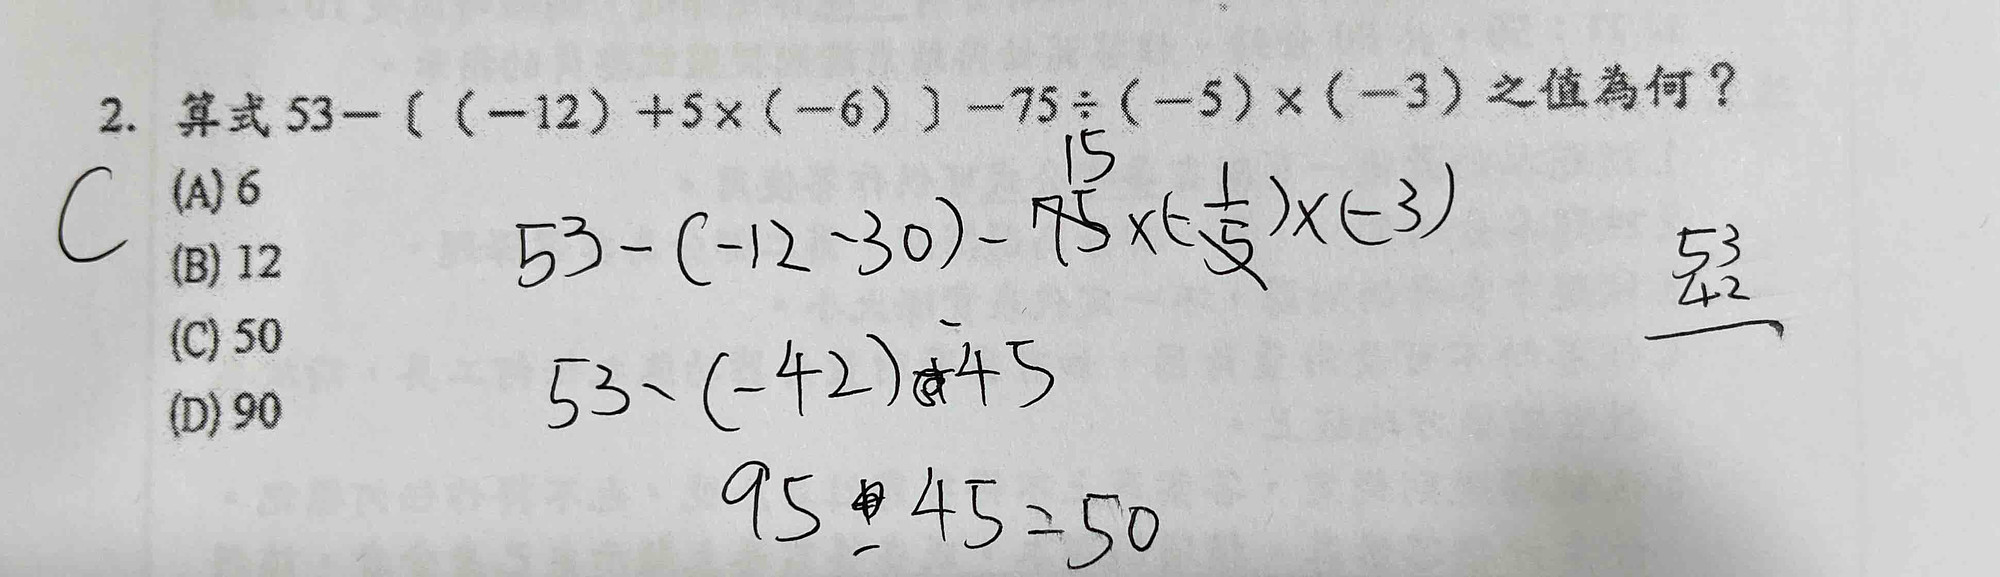 2. 算式 53－〔（－12）＋5×（－6）〕－75÷（－5）×（－3）之值為何？
C
(A) 6
(B) 12
(C) 50
(D) 90
15
53-(-12-30)-75×(-1/5)×(-3)
53
42
53-(-42)-45
95-45=50